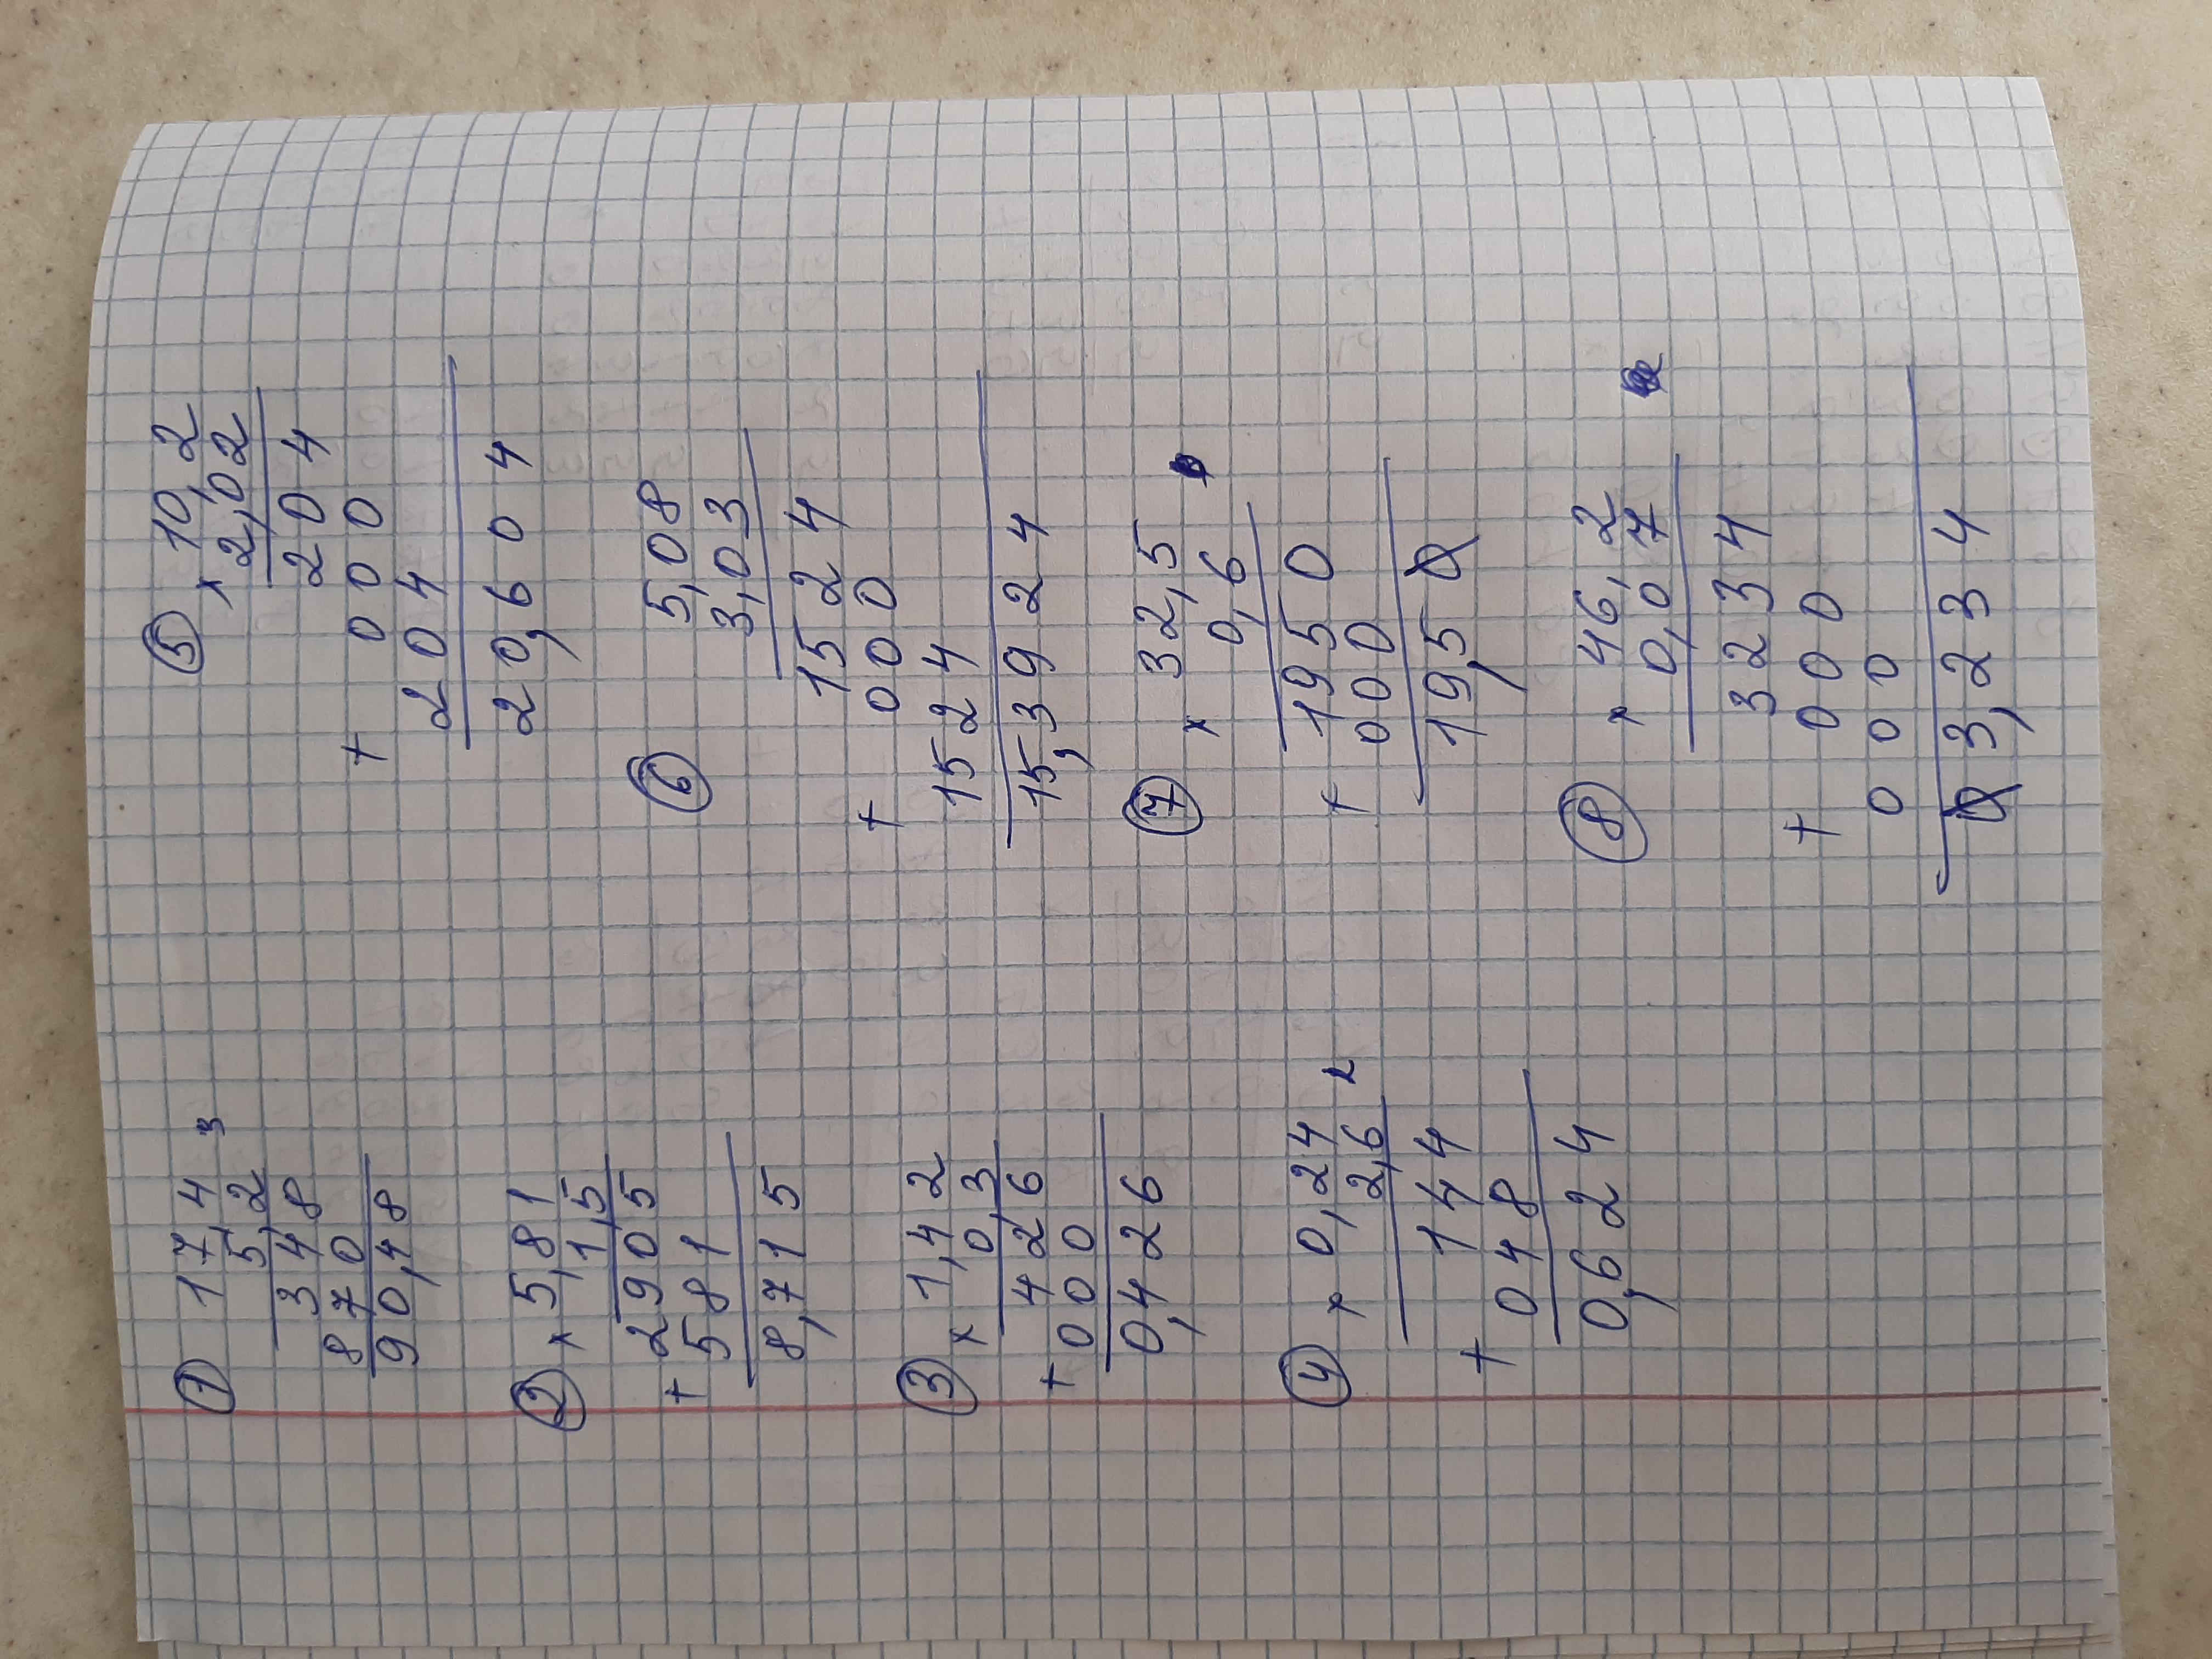 ① 17,4 3
5,2
348
870
90,48
② × 5,81
1,5
2905
+ 581
8,715
③ × 1,42
0,3
426
+ 000
0,426
④ × 0,24
2,6 2
144
+ 048
0,624
⑤ × 10,2
2,02
204
+ 000
204
20,604
⑥ 5,08
3,03
1524
+ 000
1524
15,3924
⑦ × 32,5
0,6
1950
+ 000
19,50
⑧ × 46,2
0,07
3234
+ 000
000
03,234